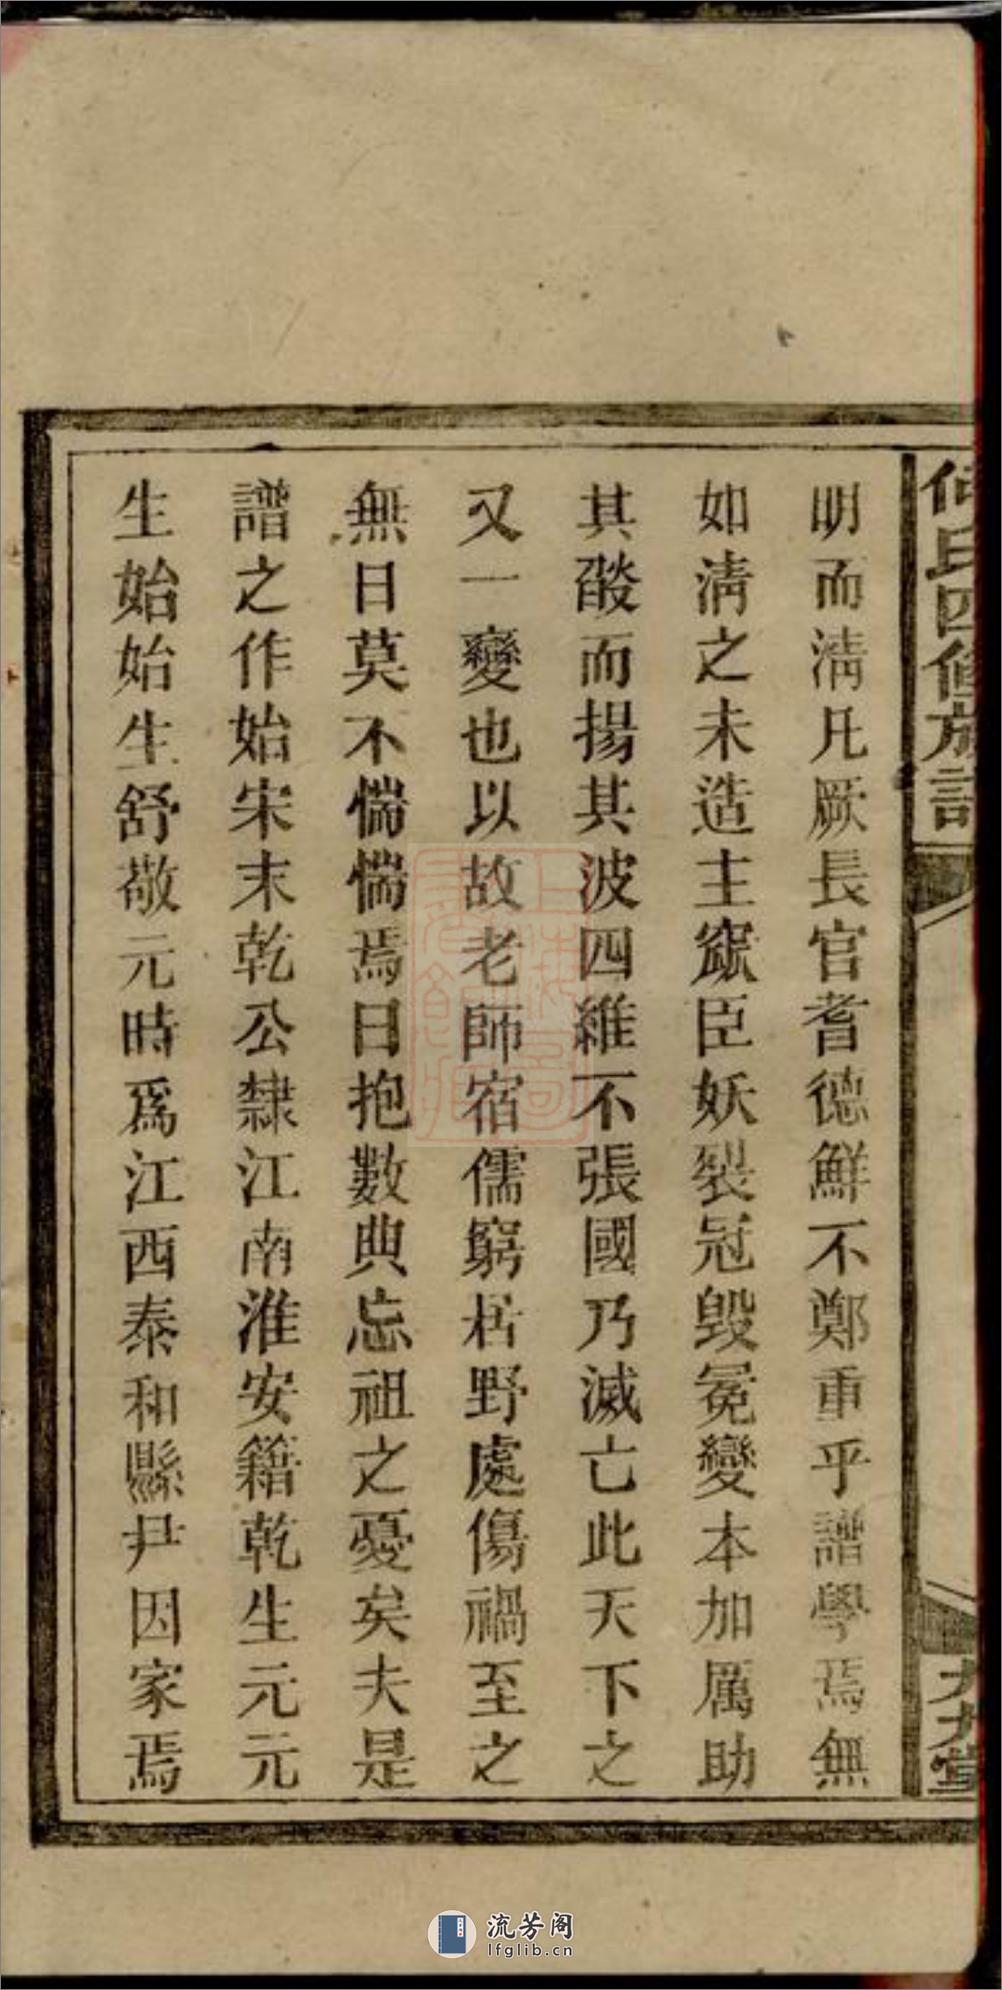 何氏四修族譜
明而淸凡厥長官耆德鮮不鄭重乎譜學焉無
如淸之未造主竄臣妖裂冠毀冕變本加厲助
其燄而揚其波四維不張國乃滅亡此天下之
又一變也以故老師宿儒窮居野處傷禍至之
無日莫不惴惴焉日抱數典忘祖之憂矣夫是
譜之作始宋末乾公隸江南淮安籍乾生元元
生始始生舒敬元時爲江西泰和縣尹因家焉
流芳阁
lfglib.cn